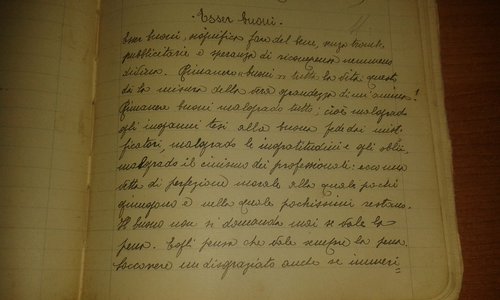 Esser buoni.
Esser buoni, significa fare del bene, senza
pubblicitarie e speranza di ricompensa nemmeno
divina. Rimanere "buoni" tutta la vita: questo
dà la misura della vera grandezza di un'anima!
Rimanere buoni malgrado tutto; cioè malgrado
gli inganni tesi alla buona fede dei misti-
ficatori, malgrado le ingratitudini e gli oblii
malgrado il cinismo dei professionali: ecco una
vetta di perfezione morale alla quale pochi
giungono e nella quale pochissimi restano.
Il buono non si domanda mai se vale la
pena. Egli pensa che vale sempre la pena.
Soccorrere un disgraziato anche se immeri-